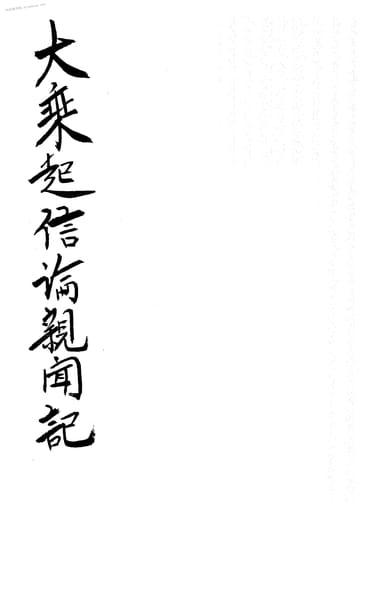 大乘起信論親聞記